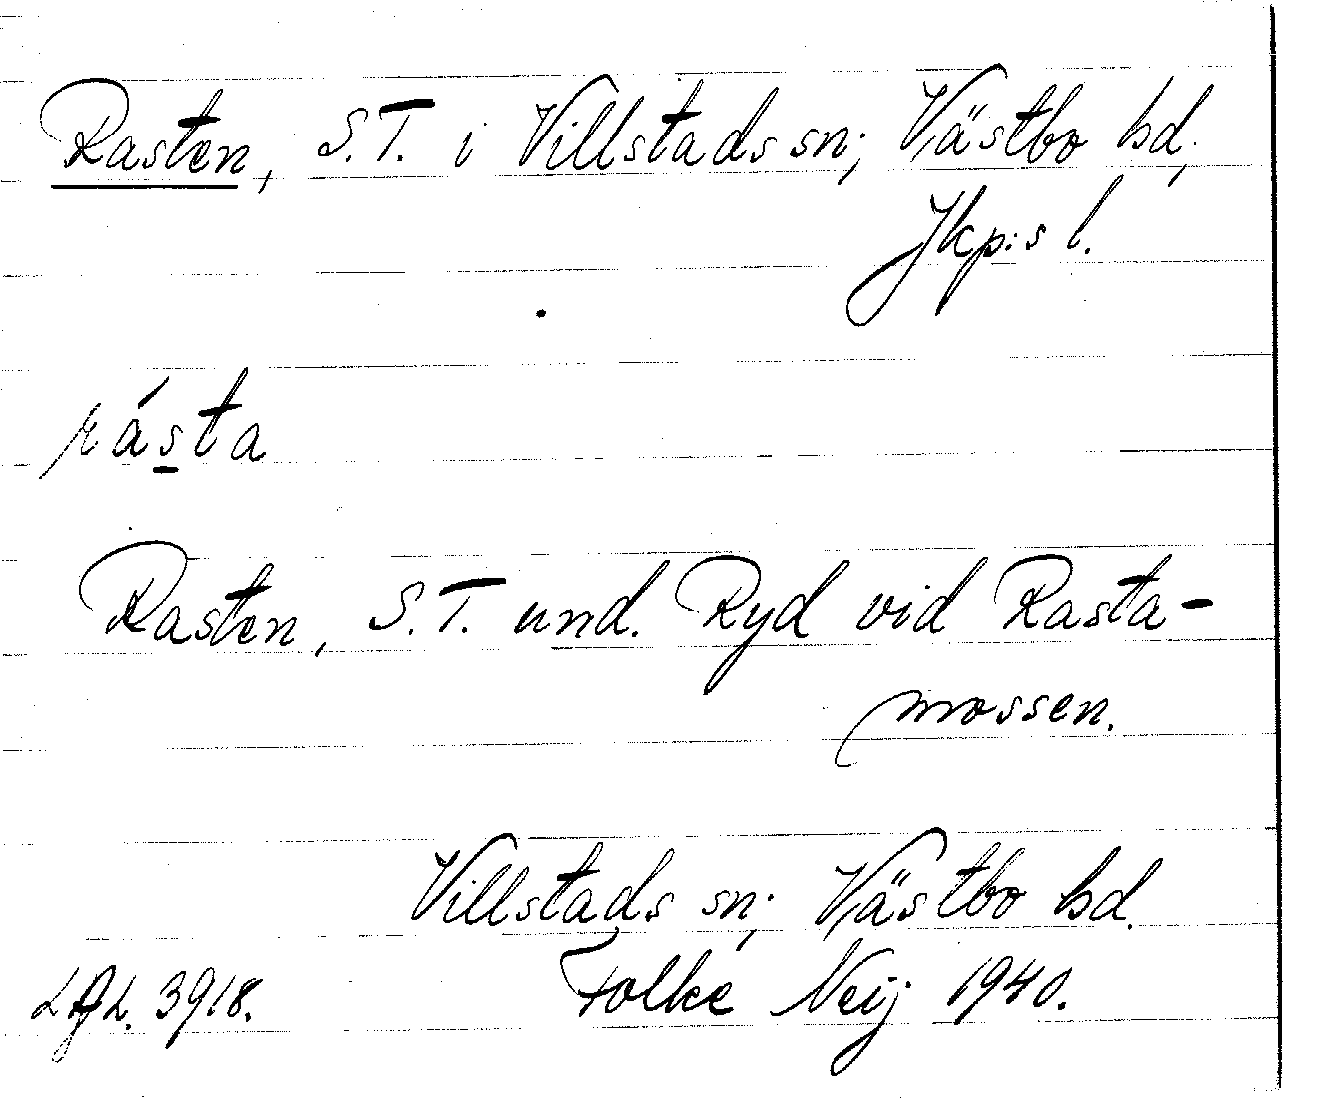 Rasten, S.T. i Villstads sn; Västbo hd,
Jkp:s l.
rásta
Rasten, S.T. und. Ryd vid Rasta-
mossen.
Villstads sn; Västbo hd.
Folke Neij 1940.
3918.